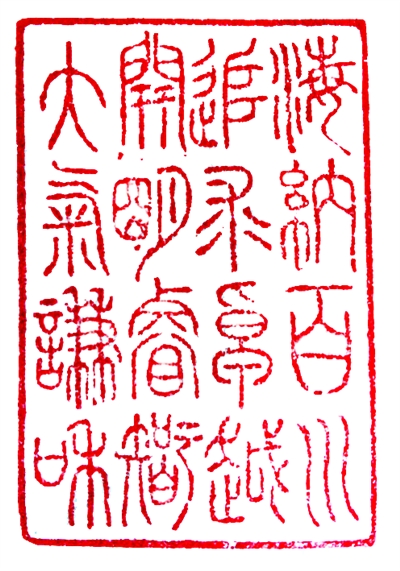 海納百川
追求卓越
開明睿智
大氣謙和